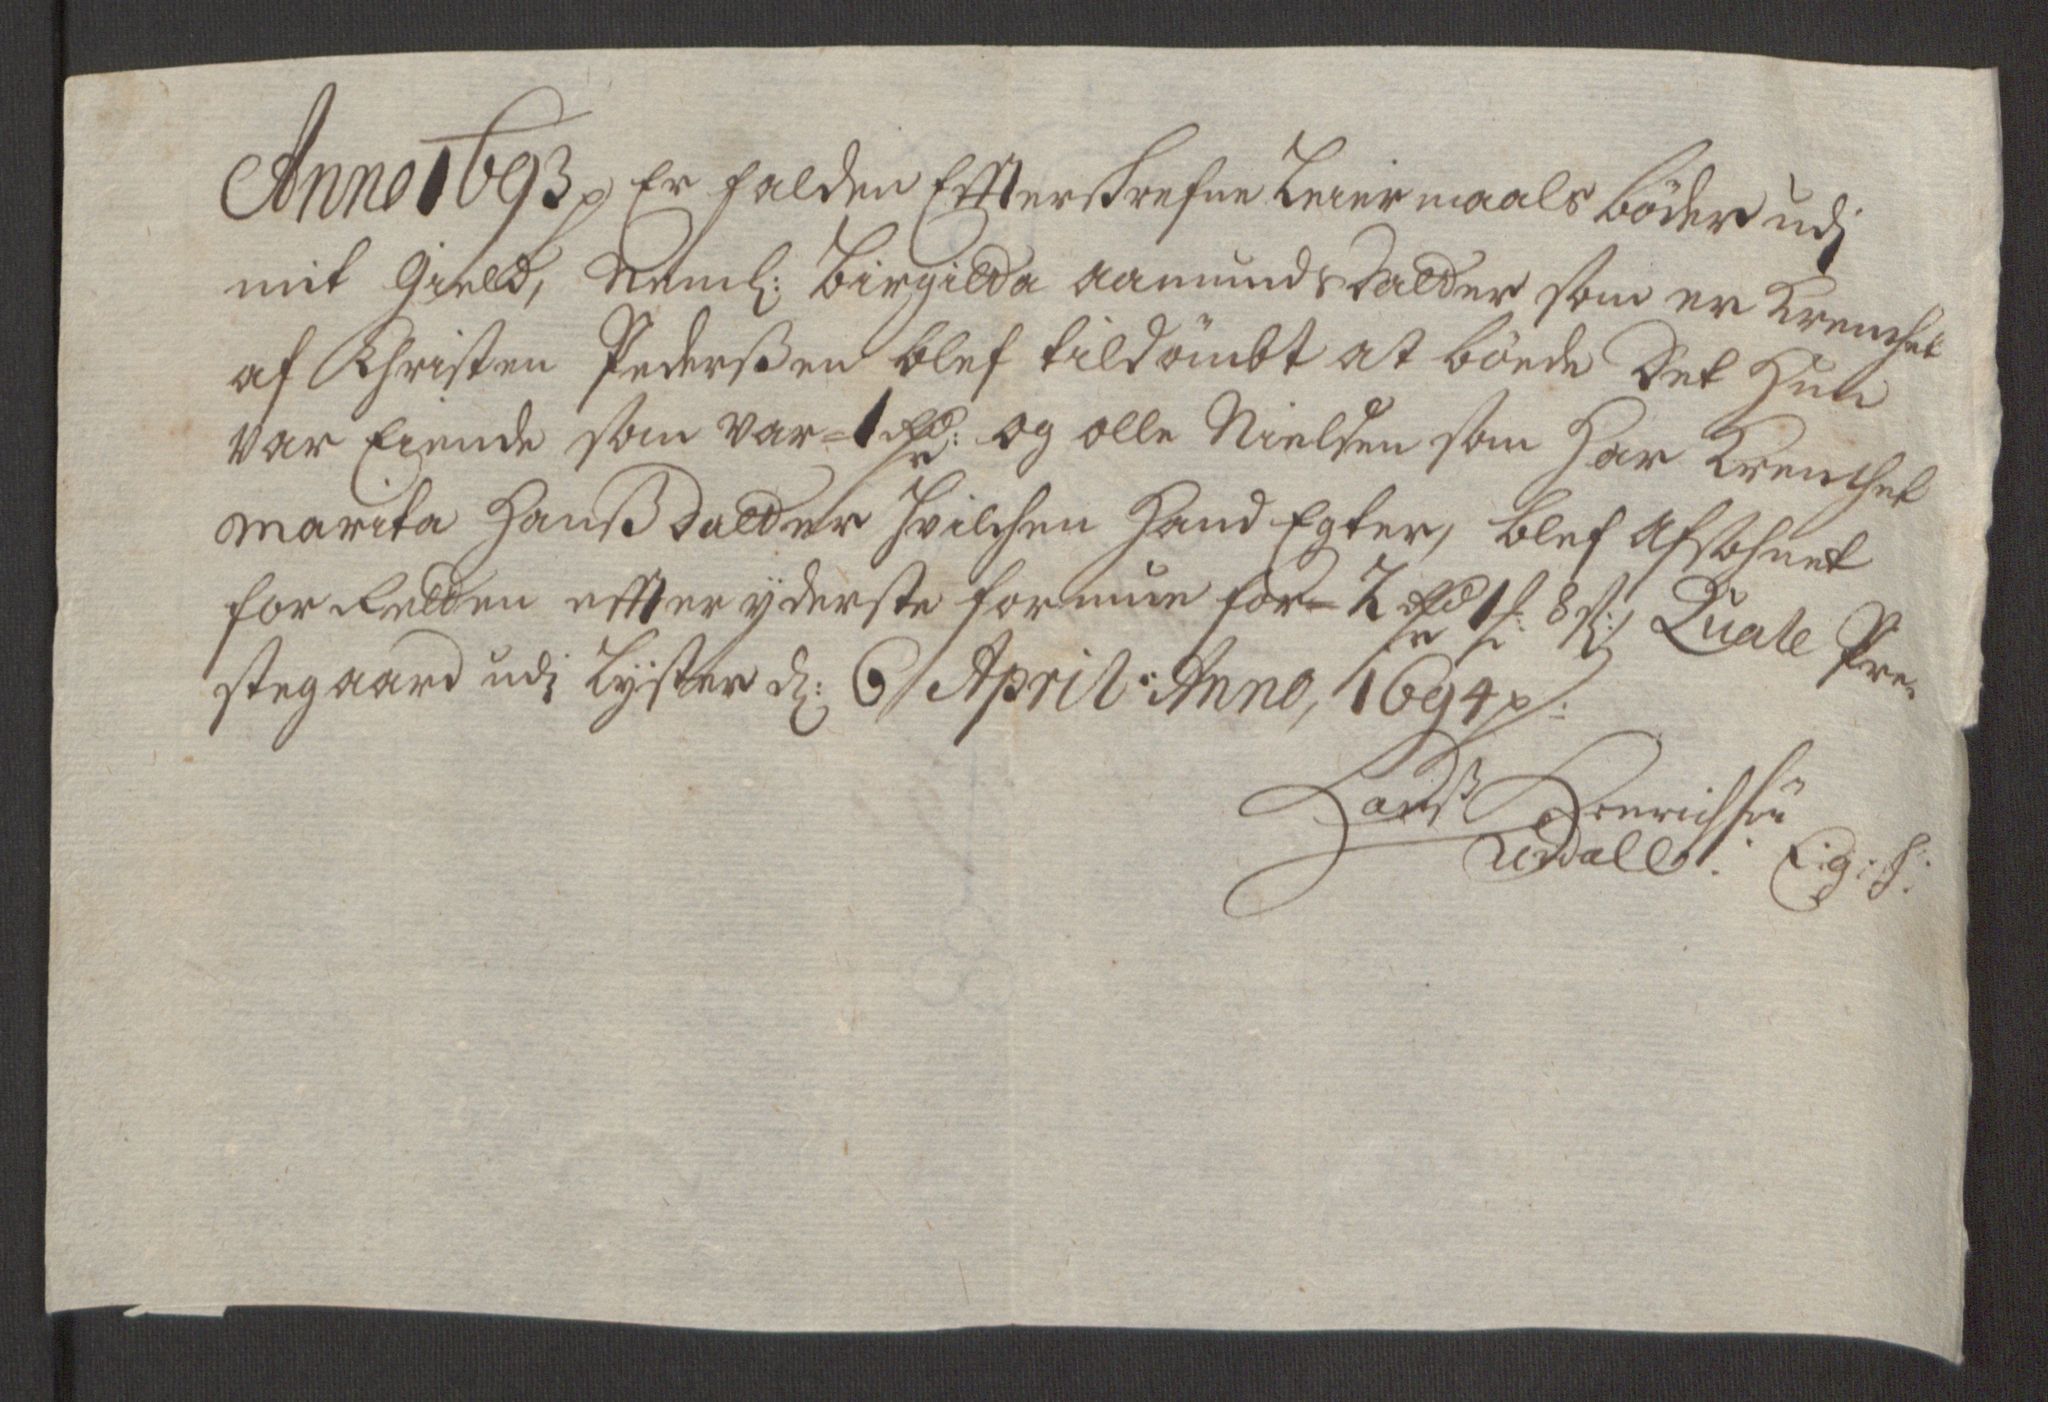 Anno 1693 p Er falden Effterskrefne Leiermaals böder udj
mit Gield, Neml: Birgilda Aamunds Datter som er Krenchet
af Christen Pederßen blef tildömbt at böede Det Hun
var Eiende som var = 1 Rdr: og olle Nielsen som Har Krenchet
Marita Hanß Datter Hvilchen Hand Egter, blef Afsohnet
for Retten effter yderste formue for = 2 Rdr 1 ß: Quale Pre-
stegaard udj Lyster d: 6 April: Anno, 1694 p:
Hanß Henrichsön
Uddall. E: g: h: